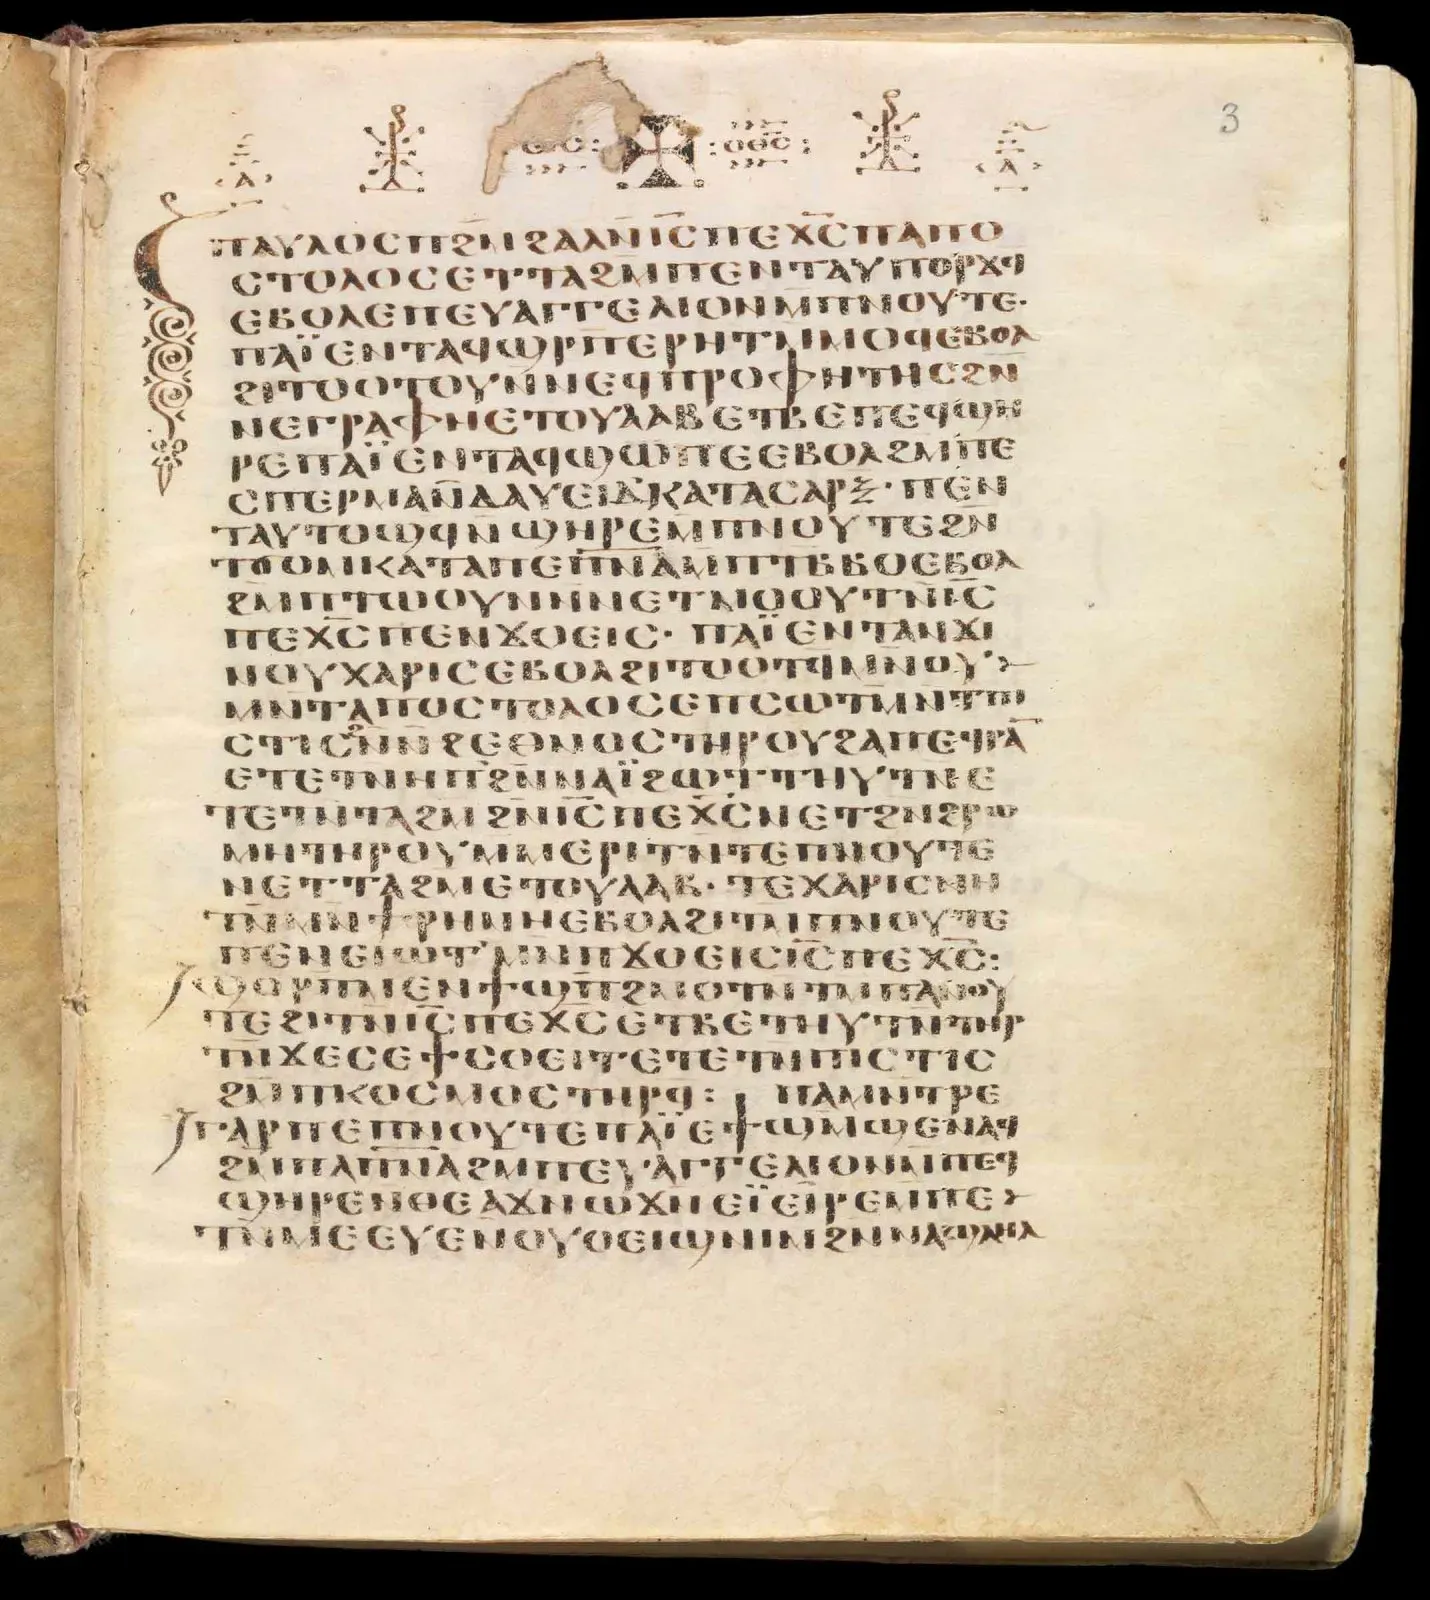 3
ⲁ ⲑⲥ : : ⲟⲑⲥ : ⲁ
ⲡⲁⲩⲗⲟⲥ ⲡϩⲙϩⲁⲗ ⲛ̄ⲓ̅ⲥ̅ ⲡⲉⲭ̅ⲥ̅ ⲡⲁⲡⲟ
ⲥⲧⲟⲗⲟⲥ ⲉⲧⲧⲁϩⲙ ⲡⲉⲛⲧⲁⲩⲡⲟⲣϫϥ
ⲉⲃⲟⲗ ⲉⲡⲉⲩⲁⲅⲅⲉⲗⲓⲟⲛ ⲙ̄ⲡⲛⲟⲩⲧⲉ·
ⲡⲁⲓ̈ ⲉⲛⲧⲁϥϣⲣⲡⲉⲣⲏⲧ ⲙ̄ⲙⲟϥ ⲉⲃⲟⲗ
ϩⲓⲧⲟⲟⲧⲟⲩ ⲛ̄ⲛⲉϥⲡⲣⲟⲫⲏⲧⲏⲥ ϩⲛ̄
ⲛⲉⲅⲣⲁⲫⲏ ⲉⲧⲟⲩⲁⲁⲃ ⲉⲧⲃⲉ ⲡⲉϥϣⲏ
ⲣⲉ ⲡⲁⲓ̈ ⲉⲛⲧⲁϥϣⲱⲡⲉ ⲉⲃⲟⲗ ϩⲙ̄ ⲡⲉ
ⲥⲡⲉⲣⲙⲁ ⲛ̄ⲇⲁⲩⲉⲓⲇ ⲕⲁⲧⲁ ⲥⲁⲣⲝ· ⲡⲉⲛ
ⲧⲁⲩⲧⲟϣϥ ⲛ̄ϣⲏⲣⲉ ⲙ̄ⲡⲛⲟⲩⲧⲉ ϩⲛ̄
ⲧϭⲟⲙ ⲕⲁⲧⲁ ⲡⲉⲡ̅ⲛ̅ⲁ̅ ⲙ̄ⲡⲧⲃ̄ⲃⲟ ⲉⲃⲟⲗ
ϩⲙ̄ ⲡⲧⲱⲟⲩⲛ ⲛ̄ⲛⲉⲧⲙⲟⲟⲩⲧ ⲛ̄ⲓ̅ⲥ̅
ⲡⲉⲭ̅ⲥ̅ ⲡⲉⲛϫⲟⲉⲓⲥ· ⲡⲁⲓ̈ ⲉⲛⲧⲁⲛϫⲓ
ⲛⲟⲩⲭⲁⲣⲓⲥ ⲉⲃⲟⲗ ϩⲓⲧⲟⲟⲧϥ ⲙⲛ̄ ⲛⲟⲩ
ⲙⲛ̄ⲧⲁⲡⲟⲥⲧⲟⲗⲟⲥ ⲉⲡⲥⲱⲧⲙ̄ ⲛ̄ⲧⲡⲓ
ⲥⲧⲓⲥ ϩⲛ̄ ⲛ̄ϩⲉⲑⲛⲟⲥ ⲧⲏⲣⲟⲩ ϩⲁ ⲡⲉϥⲣⲁⲛ
ⲉⲧⲉⲧⲛ̄ⲏⲡ ϩⲛ̄ ⲛⲁⲓ̈ ϩⲱⲧⲧⲏⲩⲧⲛ̄ ⲉ
ⲧⲉⲧⲛ̄ⲧⲁϩⲙ ϩⲛ̄ ⲓ̅ⲥ̅ ⲡⲉⲭ̅ⲥ̅ ⲛⲉⲧϩⲛ̄ ϩⲣⲱ
ⲙⲏ ⲧⲏⲣⲟⲩ ⲙ̄ⲙⲉⲣⲓⲧ ⲛ̄ⲧⲉ ⲡⲛⲟⲩⲧⲉ
ⲛⲉⲧⲧⲁϩⲙ ⲉⲧⲟⲩⲁⲁⲃ· ⲧⲉⲭⲁⲣⲓⲥ ⲛⲏ
ⲧⲛ̄ ⲙⲛ̄ ϯⲣⲏⲛⲏ ⲉⲃⲟⲗ ϩⲓⲧⲙ̄ ⲡⲛⲟⲩⲧⲉ
ⲡⲉⲛⲉⲓⲱⲧ ⲙⲛ̄ ⲡϫⲟⲉⲓⲥ ⲓ̅ⲥ̅ ⲡⲉⲭ̅ⲥ̅:
ϣⲟⲣⲡ̄ ⲙⲉⲛ ϯϣⲡ̄ϩⲙⲟⲧ ⲛ̄ⲧⲙ̄ ⲡⲁⲛⲟⲩ
ⲧⲉ ϩⲓⲧⲛ̄ ⲓ̅ⲥ̅ ⲡⲉⲭ̅ⲥ̅ ⲉⲧⲃⲉ ⲧⲏⲩⲧⲛ̄ ⲧⲏⲣ
ⲧⲛ̄ ϫⲉ ⲥⲉϯⲥⲟⲉⲓⲧ ⲉⲧⲉⲧⲛ̄ⲡⲓⲥⲧⲓⲥ
ϩⲙ̄ ⲡⲕⲟⲥⲙⲟⲥ ⲧⲏⲣϥ: ⲡⲁⲙⲛ̄ⲧⲣⲉ
ⲅⲁⲣ ⲡⲉ ⲡⲛⲟⲩⲧⲉ ⲡⲁⲓ̈ ⲉϯϣⲙ̄ϣⲉ ⲛⲁϥ
ϩⲙ̄ ⲡⲁⲡ̅ⲛ̅ⲁ̅ ϩⲙ̄ ⲡⲉⲩⲁⲅⲅⲉⲗⲓⲟⲛ ⲙ̄ⲡⲉϥ
ϣⲏⲣⲉ ⲛ̄ⲑⲉ ⲁϫⲛ̄ ⲱϫⲛ̄ ⲉⲓ̈ⲉⲓⲣⲉ ⲙ̄ⲡⲉ
ⲧⲛ̄ⲙⲉⲉⲩⲉ ⲛⲟⲩⲟⲉⲓϣ ⲛⲓⲙ ϩⲛ̄ ⲛⲁϣⲗⲏⲗ